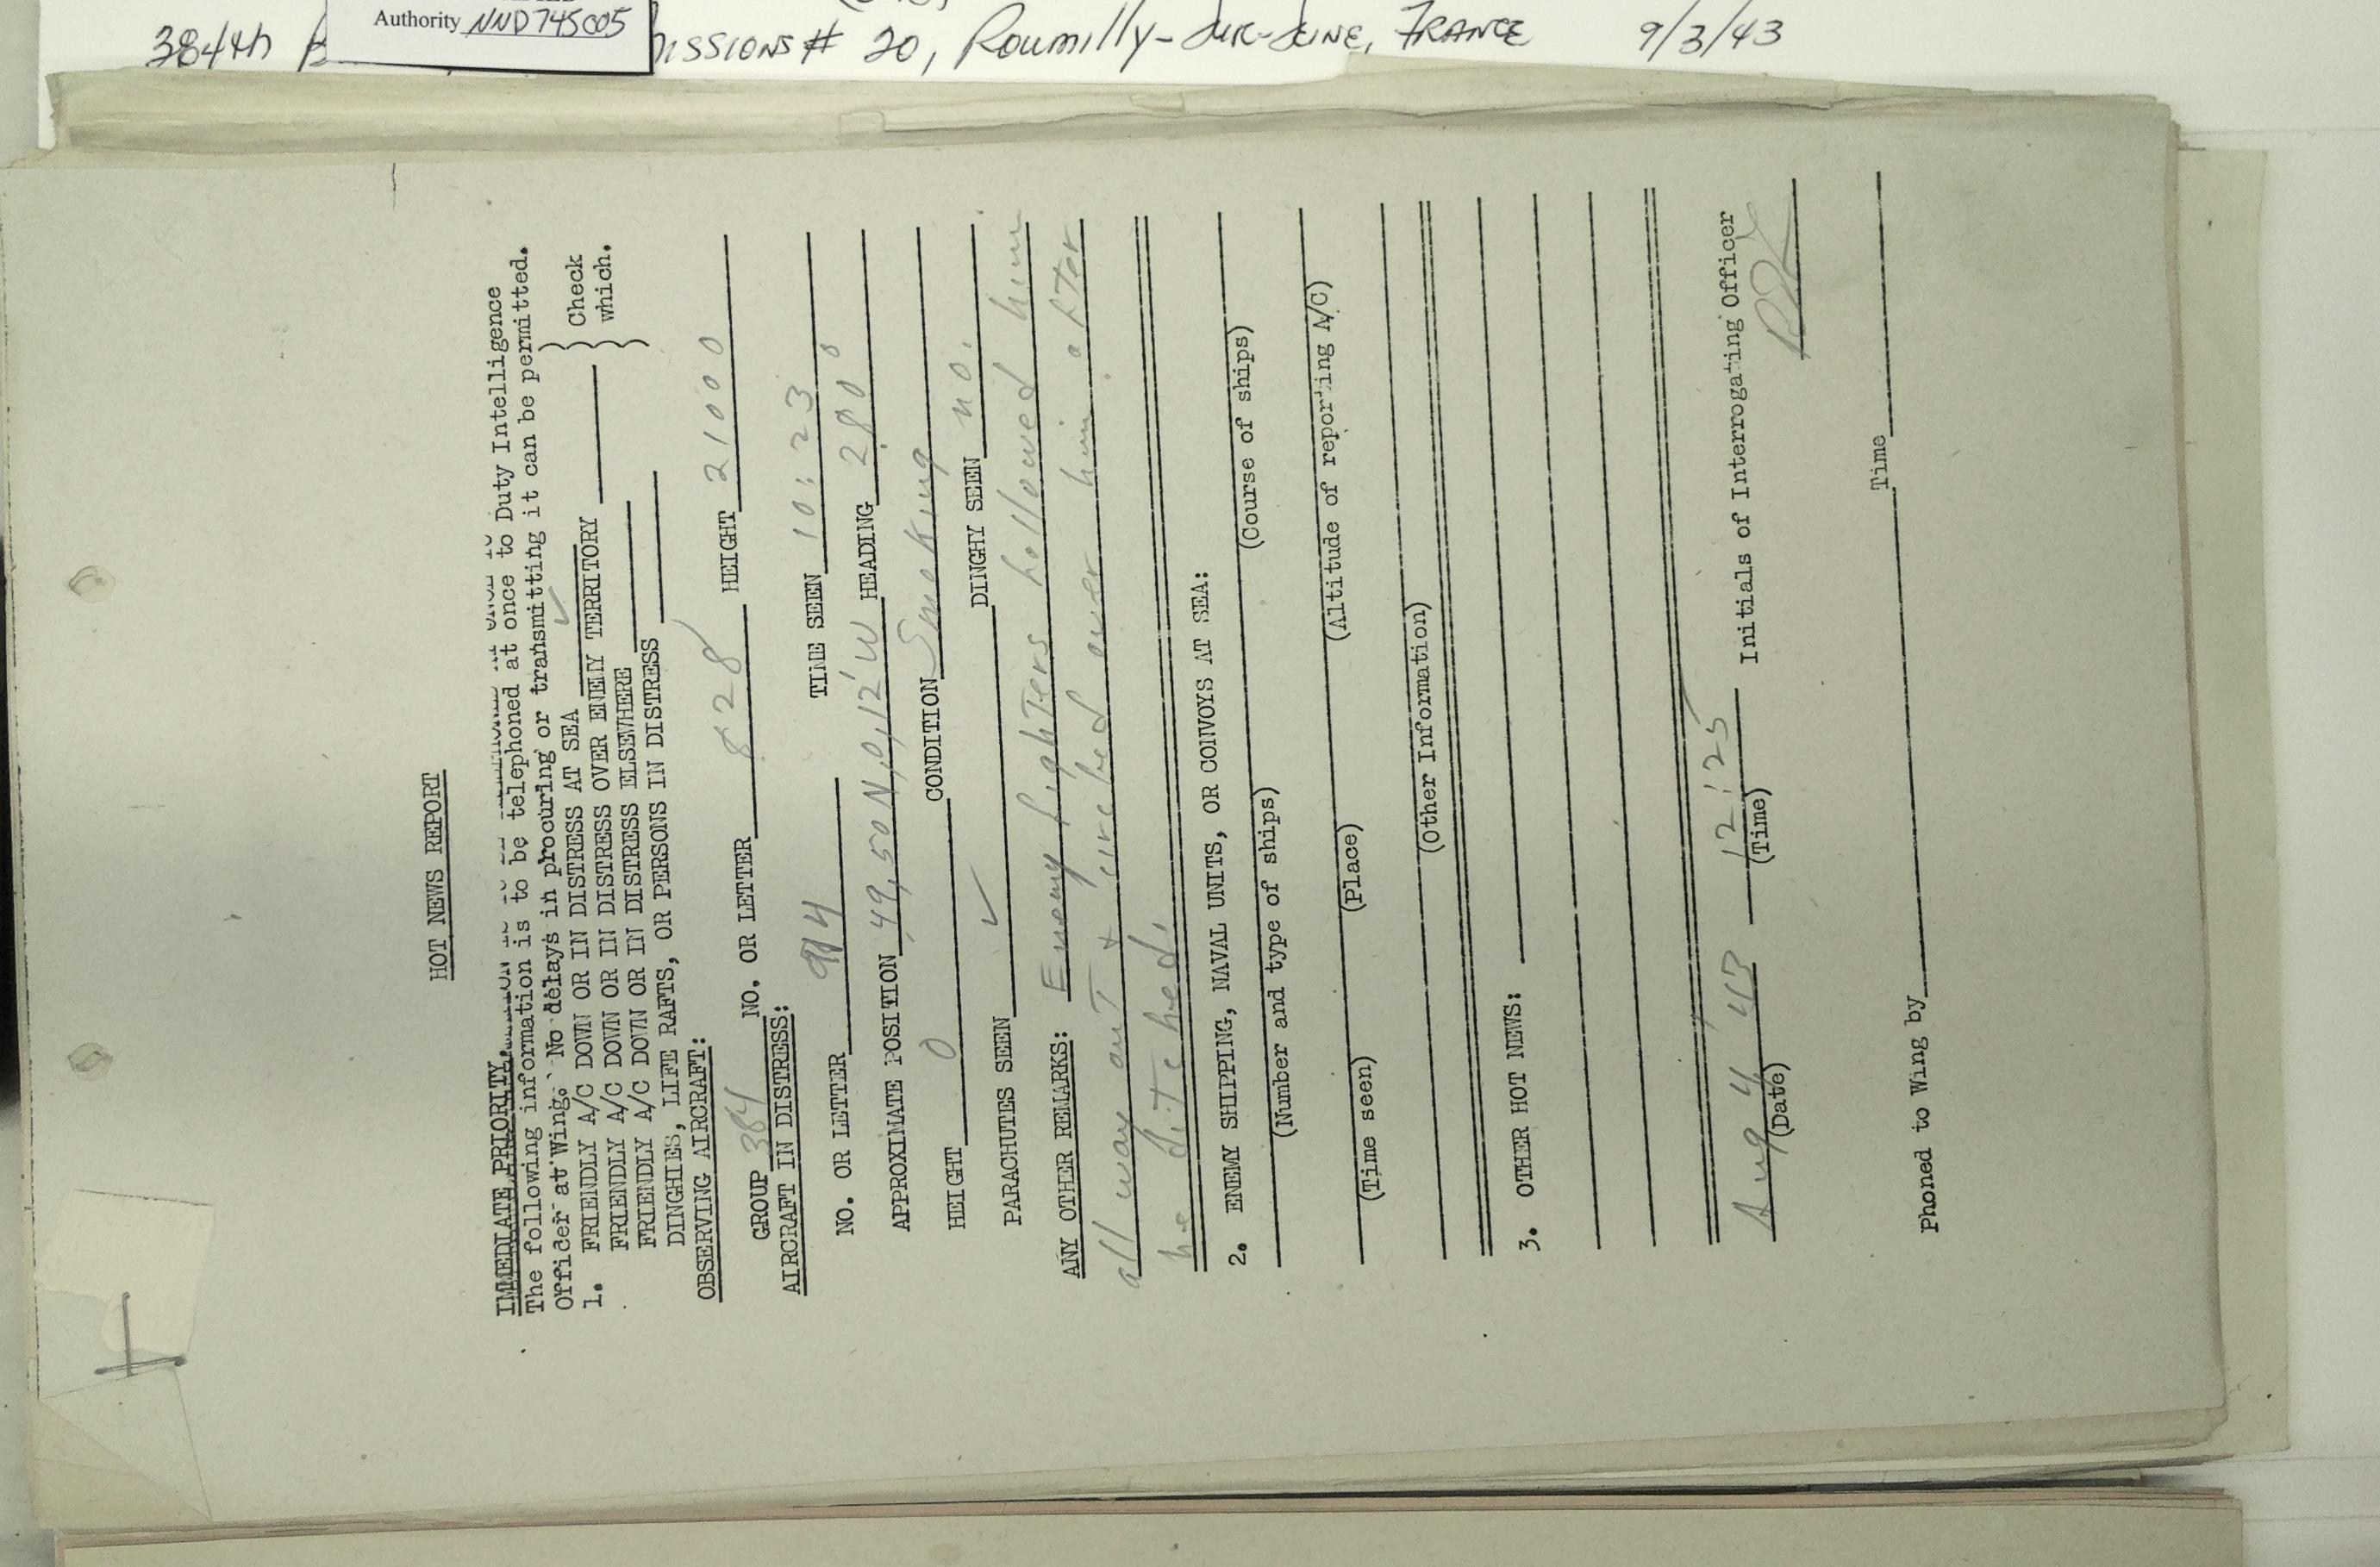 Authority NND745005
384th
missions # 20, Roumilly-Sur-Seine, FRANCE 9/3/43
HOT NEWS REPORT
IMMEDIATE PRIORITY.
The following information is to be telephoned at once to Duty Intelligence
Officer at Wing. No delays in procuring or transmitting it can be permitted.
1. FRIENDLY A/C DOWN OR IN DISTRESS AT SEA ✓ } Check
FRIENDLY A/C DOWN OR IN DISTRESS OVER ENEMY TERRITORY } which.
FRIENDLY A/C DOWN OR IN DISTRESS ELSEWHERE }
DINGHIES, LIFE RAFTS, OR PERSONS IN DISTRESS
OBSERVING AIRCRAFT:
GROUP 384 NO. OR LETTER 828 HEIGHT 21000
AIRCRAFT IN DISTRESS:
NO. OR LETTER 914 TIME SEEN 10:23
APPROXIMATE POSITION 49,50N,0,12'W HEADING 280°
HEIGHT 0 CONDITION Smoking
PARACHUTES SEEN ✓ DINGHY SEEN no.
ANY OTHER REMARKS: Enemy fighters followed him
all way out & circled over him after
he ditched.
2. ENEMY SHIPPING, NAVAL UNITS, OR CONVOYS AT SEA:
(Number and type of ships) (Course of ships)
(Time seen) (Place) (Altitude of reporting A/C)
(Other Information)
3. OTHER HOT NEWS:
Aug 4 43 12:25 Initials of Interrogating Officer
(Date) (Time)
Phoned to Wing by Time